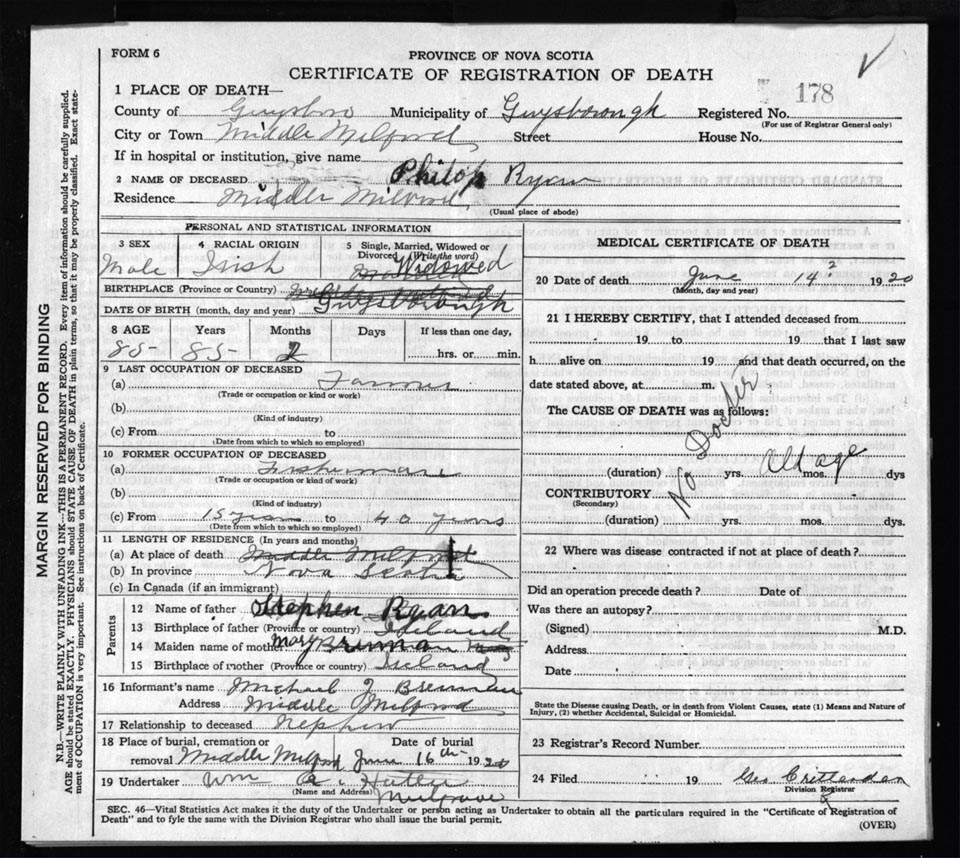 FORM 6
PROVINCE OF NOVA SCOTIA
CERTIFICATE OF REGISTRATION OF DEATH
178
1 PLACE OF DEATH—
County of Guysboro Municipality of Guysborough Registered No.
(For use of Registrar General only)
City or Town Middle Milford Street House No.
If in hospital or institution, give name
2 NAME OF DECEASED Philop Ryan
Residence Middle Milford
(Usual place of abode)
PERSONAL AND STATISTICAL INFORMATION
3 SEX 4 RACIAL ORIGIN 5 Single, Married, Widowed or Divorced (Write the word)
Male Irish Widowed
BIRTHPLACE (Province or Country)
Guysborough
DATE OF BIRTH (month, day and year)
8 AGE Years Months Days If less than one day,
85 85 2 hrs. or min.
9 LAST OCCUPATION OF DECEASED
(a) Farmer
(Trade or occupation or kind of work)
(b)
(Kind of industry)
(c) From to
(Date from which to which so employed)
10 FORMER OCCUPATION OF DECEASED
(a) Fisherman
(Trade or occupation or kind of work)
(b)
(Kind of industry)
(c) From 15 years to 40 years
(Date from which to which so employed)
11 LENGTH OF RESIDENCE (In years and months)
(a) At place of death Middle Milford
(b) In province Nova Scotia
(c) In Canada (if an immigrant)
Parents
12 Name of father Stephen Ryan
13 Birthplace of father (Province or country) Ireland
14 Maiden name of mother Mary Brennan
15 Birthplace of mother (Province or country) Ireland
16 Informant's name Michael J Brennan
Address Middle Milford
17 Relationship to deceased Nephew
18 Place of burial, cremation or Date of burial
removal Middle Milford June 16th 1920
19 Undertaker Wm
(Name and Address) Mulgrave
MEDICAL CERTIFICATE OF DEATH
20 Date of death June 14 1920
(Month, day and year)
21 I HEREBY CERTIFY, that I attended deceased from
19 to 19 that I last saw
h alive on 19 and that death occurred, on the
date stated above, at m.
The CAUSE OF DEATH was as follows:
No Doctor
Old age
(duration) yrs. mos. dys
CONTRIBUTORY
(Secondary)
(duration) yrs. mos. dys.
22 Where was disease contracted if not at place of death?
Did an operation precede death? Date of
Was there an autopsy?
(Signed) M.D.
Address
Date
State the Disease causing Death, or in death from Violent Causes, state (1) Means and Nature of
Injury, (2) whether Accidental, Suicidal or Homicidal.
23 Registrar's Record Number
24 Filed 19 Geo Crittenden
Division Registrar
SEC. 46—Vital Statistics Act makes it the duty of the Undertaker or person acting as Undertaker to obtain all the particulars required in the "Certificate of Registration of
Death" and to fyle the same with the Division Registrar who shall issue the burial permit.
(OVER)
MARGIN RESERVED FOR BINDING
N.B.—WRITE PLAINLY WITH UNFADING INK—THIS IS A PERMANENT RECORD. Every item of information should be carefully supplied.
AGE should be stated EXACTLY. PHYSICIANS should STATE CAUSE OF DEATH in plain terms, so that it may be properly classified. Exact state-
ment of OCCUPATION is very important. See instructions on back of Certificate.